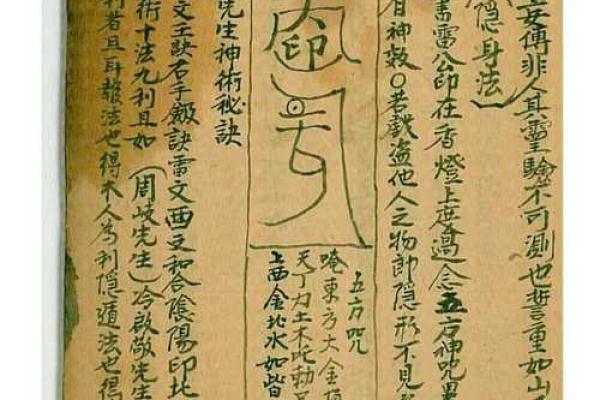 妄傳非人其靈驗不可測也誓重如山
隱身法
雷公印在香燈上度過念五方神咒
有神数○若戲盗他人之物即隐形不見
大印
五方咒
唵東方大金
天丁力士木
上西金北水如皆
先生神術秘訣
文王訣右手劔訣雷文西支和合陰陽印
術十法九利且如(周岐先生)冷啟敬先生
者且耳報法也得木人為利隱遁法也得